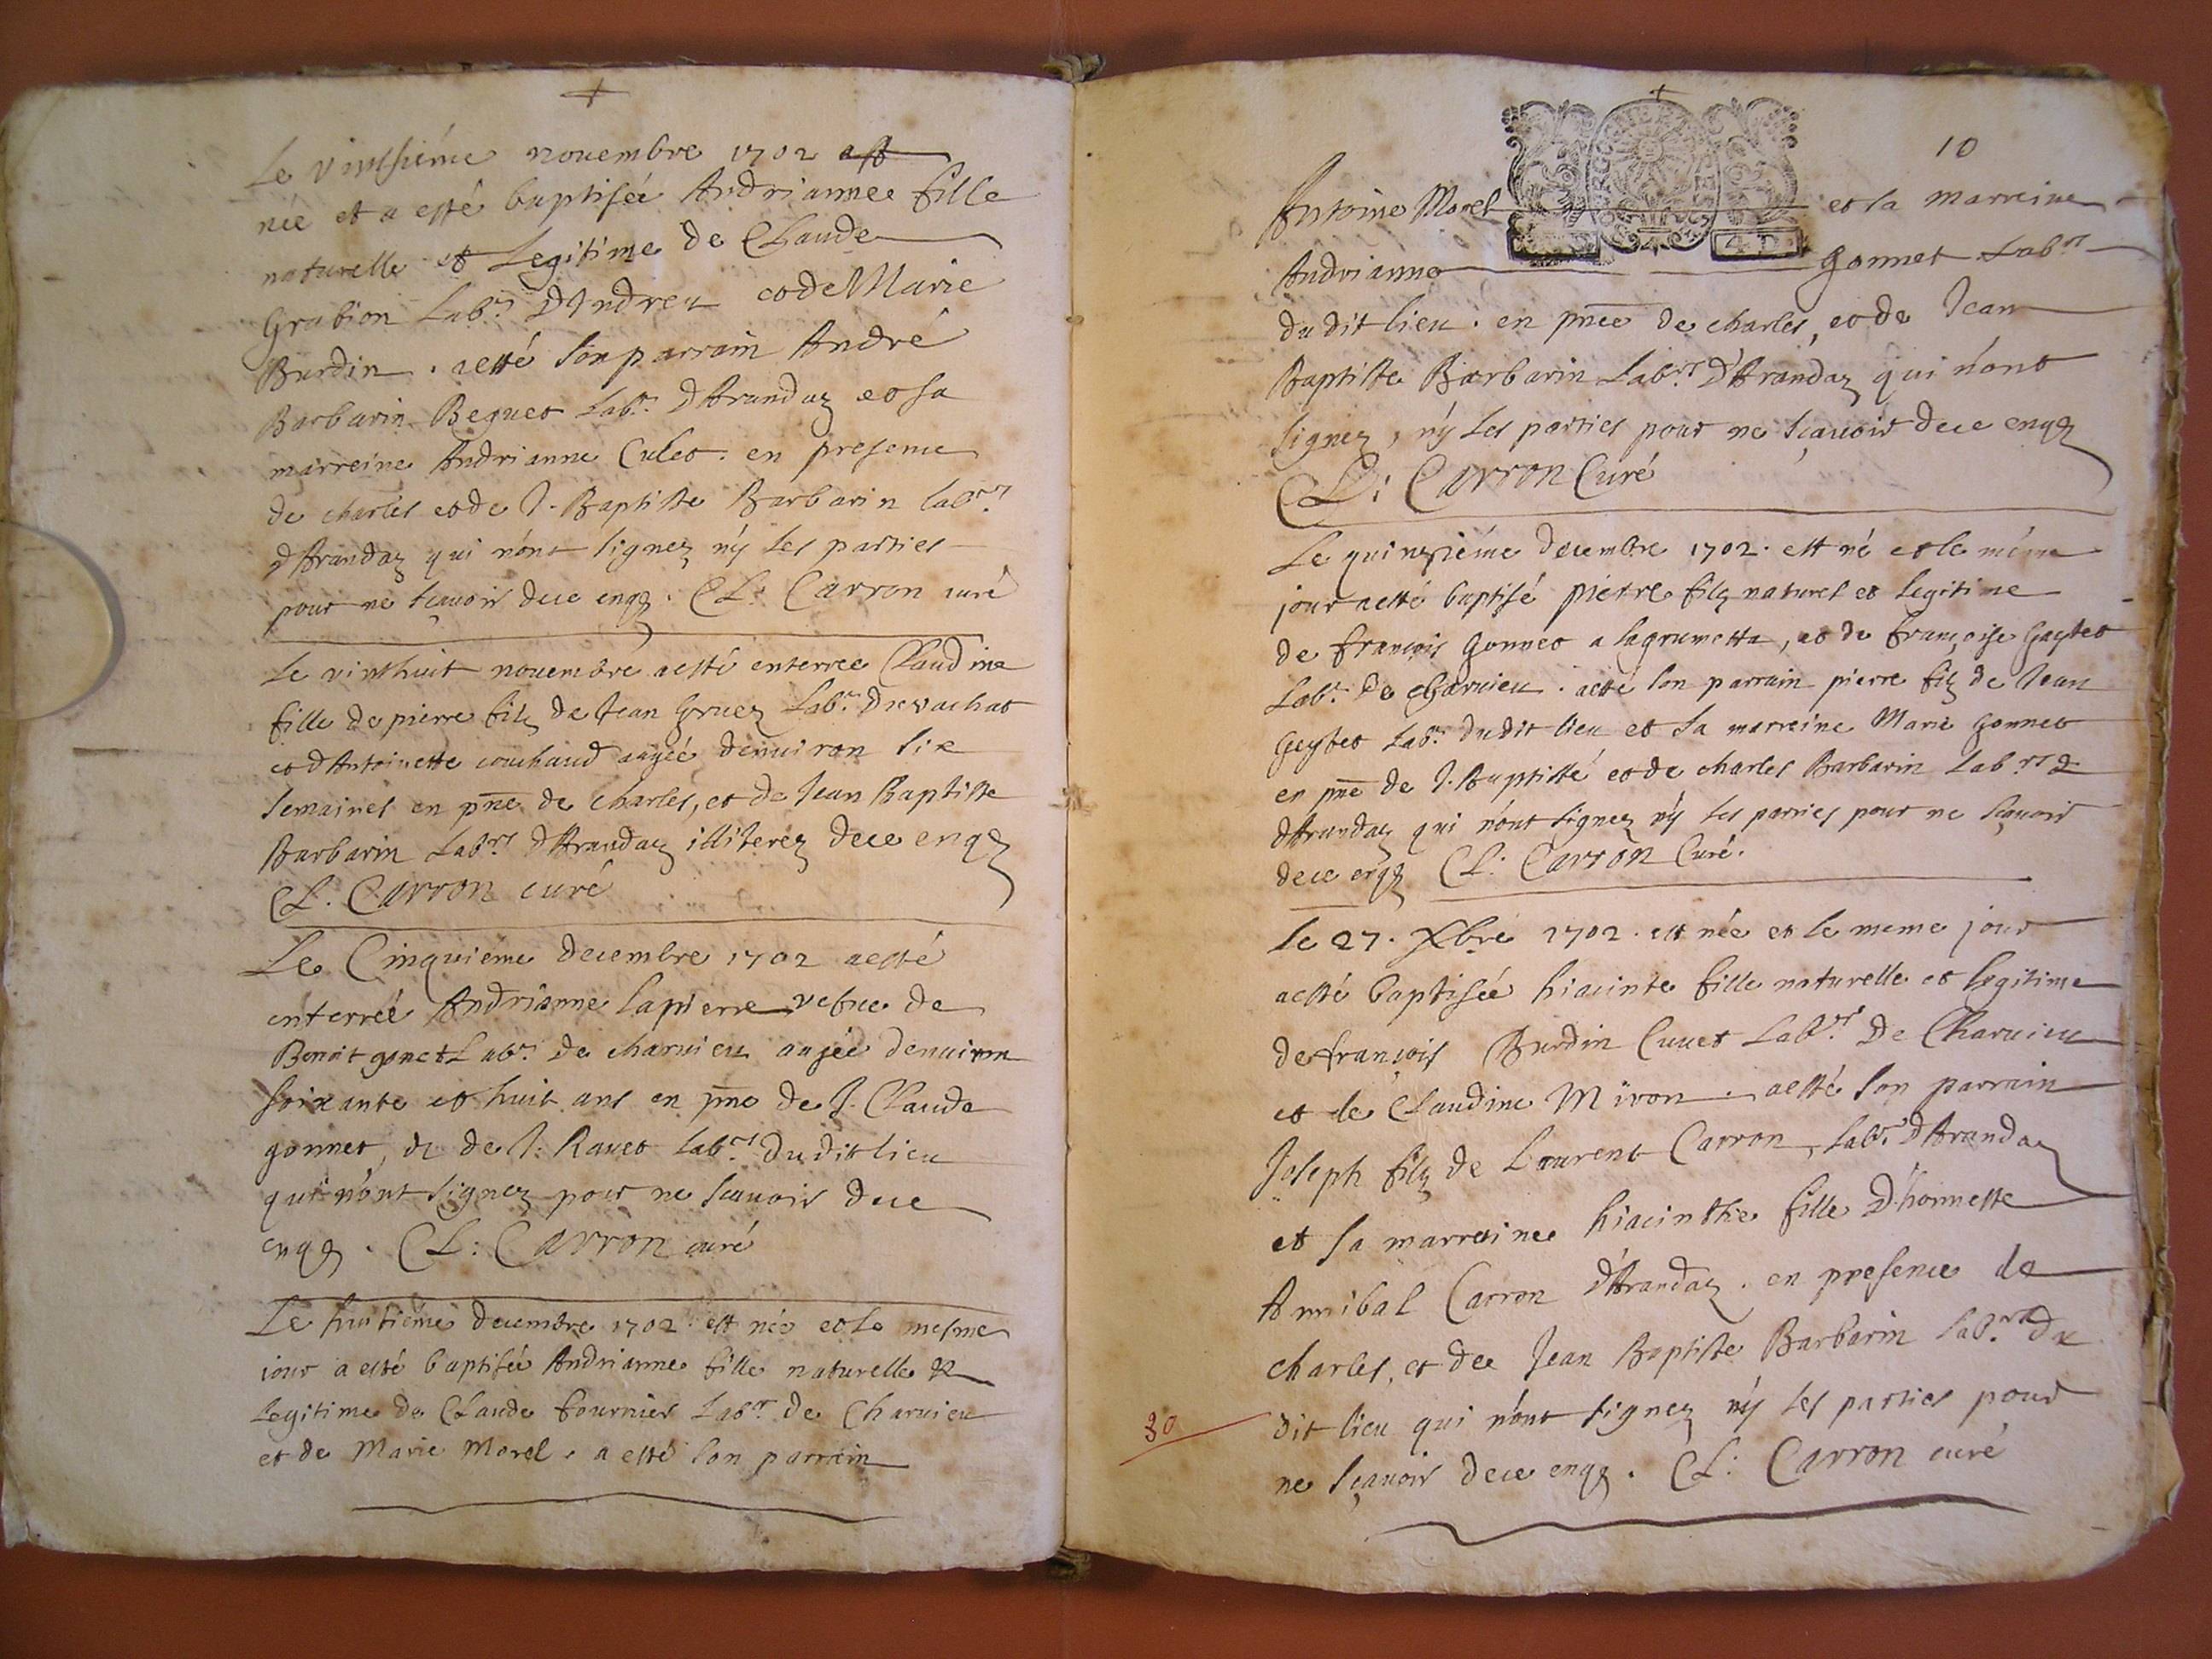 Le vintsiéme novembre 1702 est
née et a esté baptisée Andrianne fille
naturelle et Legitime de Claude
Grabion Labr. D'Indreu et de Marie
Burdin. a esté son parrain André
Barbarin Beguet Labr. d'Arandaz et sa
marreine Andrianne Culet. en presence
de charles et de J. Baptiste Barbarin labrs
d'Arandaz qui n'ont signez ny les parties
pour ne sçavoir de ce enqz. CL: Carron curé
Le vinthuit novembre a esté enterree Claudine
fille de pierre filz de Jean Gruez Labr.
et d'Antoinette couchaud aagée d'enuiron six
semaines en pnce de Charles, et de Jean Baptiste
Barbarin Labrs d'Arandaz illiterez de ce enqz
CL. Carron curé
Le Cinquiéme decembre 1702 a esté
enterrée Andrianne Lapierre vefue de
Benoit gonet Labr. de charuieu aagée d'enuiron
soixante et huit ans en pnce de J. Claude
gonnet, et de J: Rauet labrs du dit lieu
qui n'ont signez pour ne scauoir de ce
enqz. CL: Carron curé
Le huitiéme decembre 1702 est née et le mesme
jour a esté baptisée Andrianne fille naturelle &
legitime de Claude fournier Labr. de Charuieu
et de Marie Morel. a esté son parrain
10
Antoine Morel et la marreine
Andrianne Gonnet Labrs
du dit lieu. en pnce de charles, et de Jean
Baptiste Barbarin Labrs d'Arandaz qui n'ont
signez, ny les parties pour ne sçauoir de ce enqz
CL: Carron Curé
Le quinziéme decembre 1702. est né et le méme
jour a esté baptisé pierre filz naturel et legitime
de françois Gonnet a lagrumetta, et de françoise Geytet
Labr. de Charuieu. a esté son parrain pierre filz de Jean
Geytet Labr. du dit lieu et sa marreine Marie Gonnet
en pnce de J. Baptiste et de charles Barbarin Labrs
d'Arandaz qui n'ont signez ny les parties pour ne sçauoir
de ce enqz CL: Carron Curé.
Le 27. Xbre 1702. est née et le meme jour
a esté baptisée hiacinte fille naturelle et legitime
de françois Burdin Cuuet Labr. de Charuieu
et de Claudine Miron. a esté son parrain
Joseph filz de Laurent Carron, Labr. d'Arandaz
et sa marreine hiacinthe fille d'honneste
Annibal Carron d'Arandaz. en presence de
charles, et de Jean Baptiste Barbarin labrs du
30
dit lieu qui n'ont signez ny les parties pour
ne sçauoir de ce enqz. CL: Carron curé